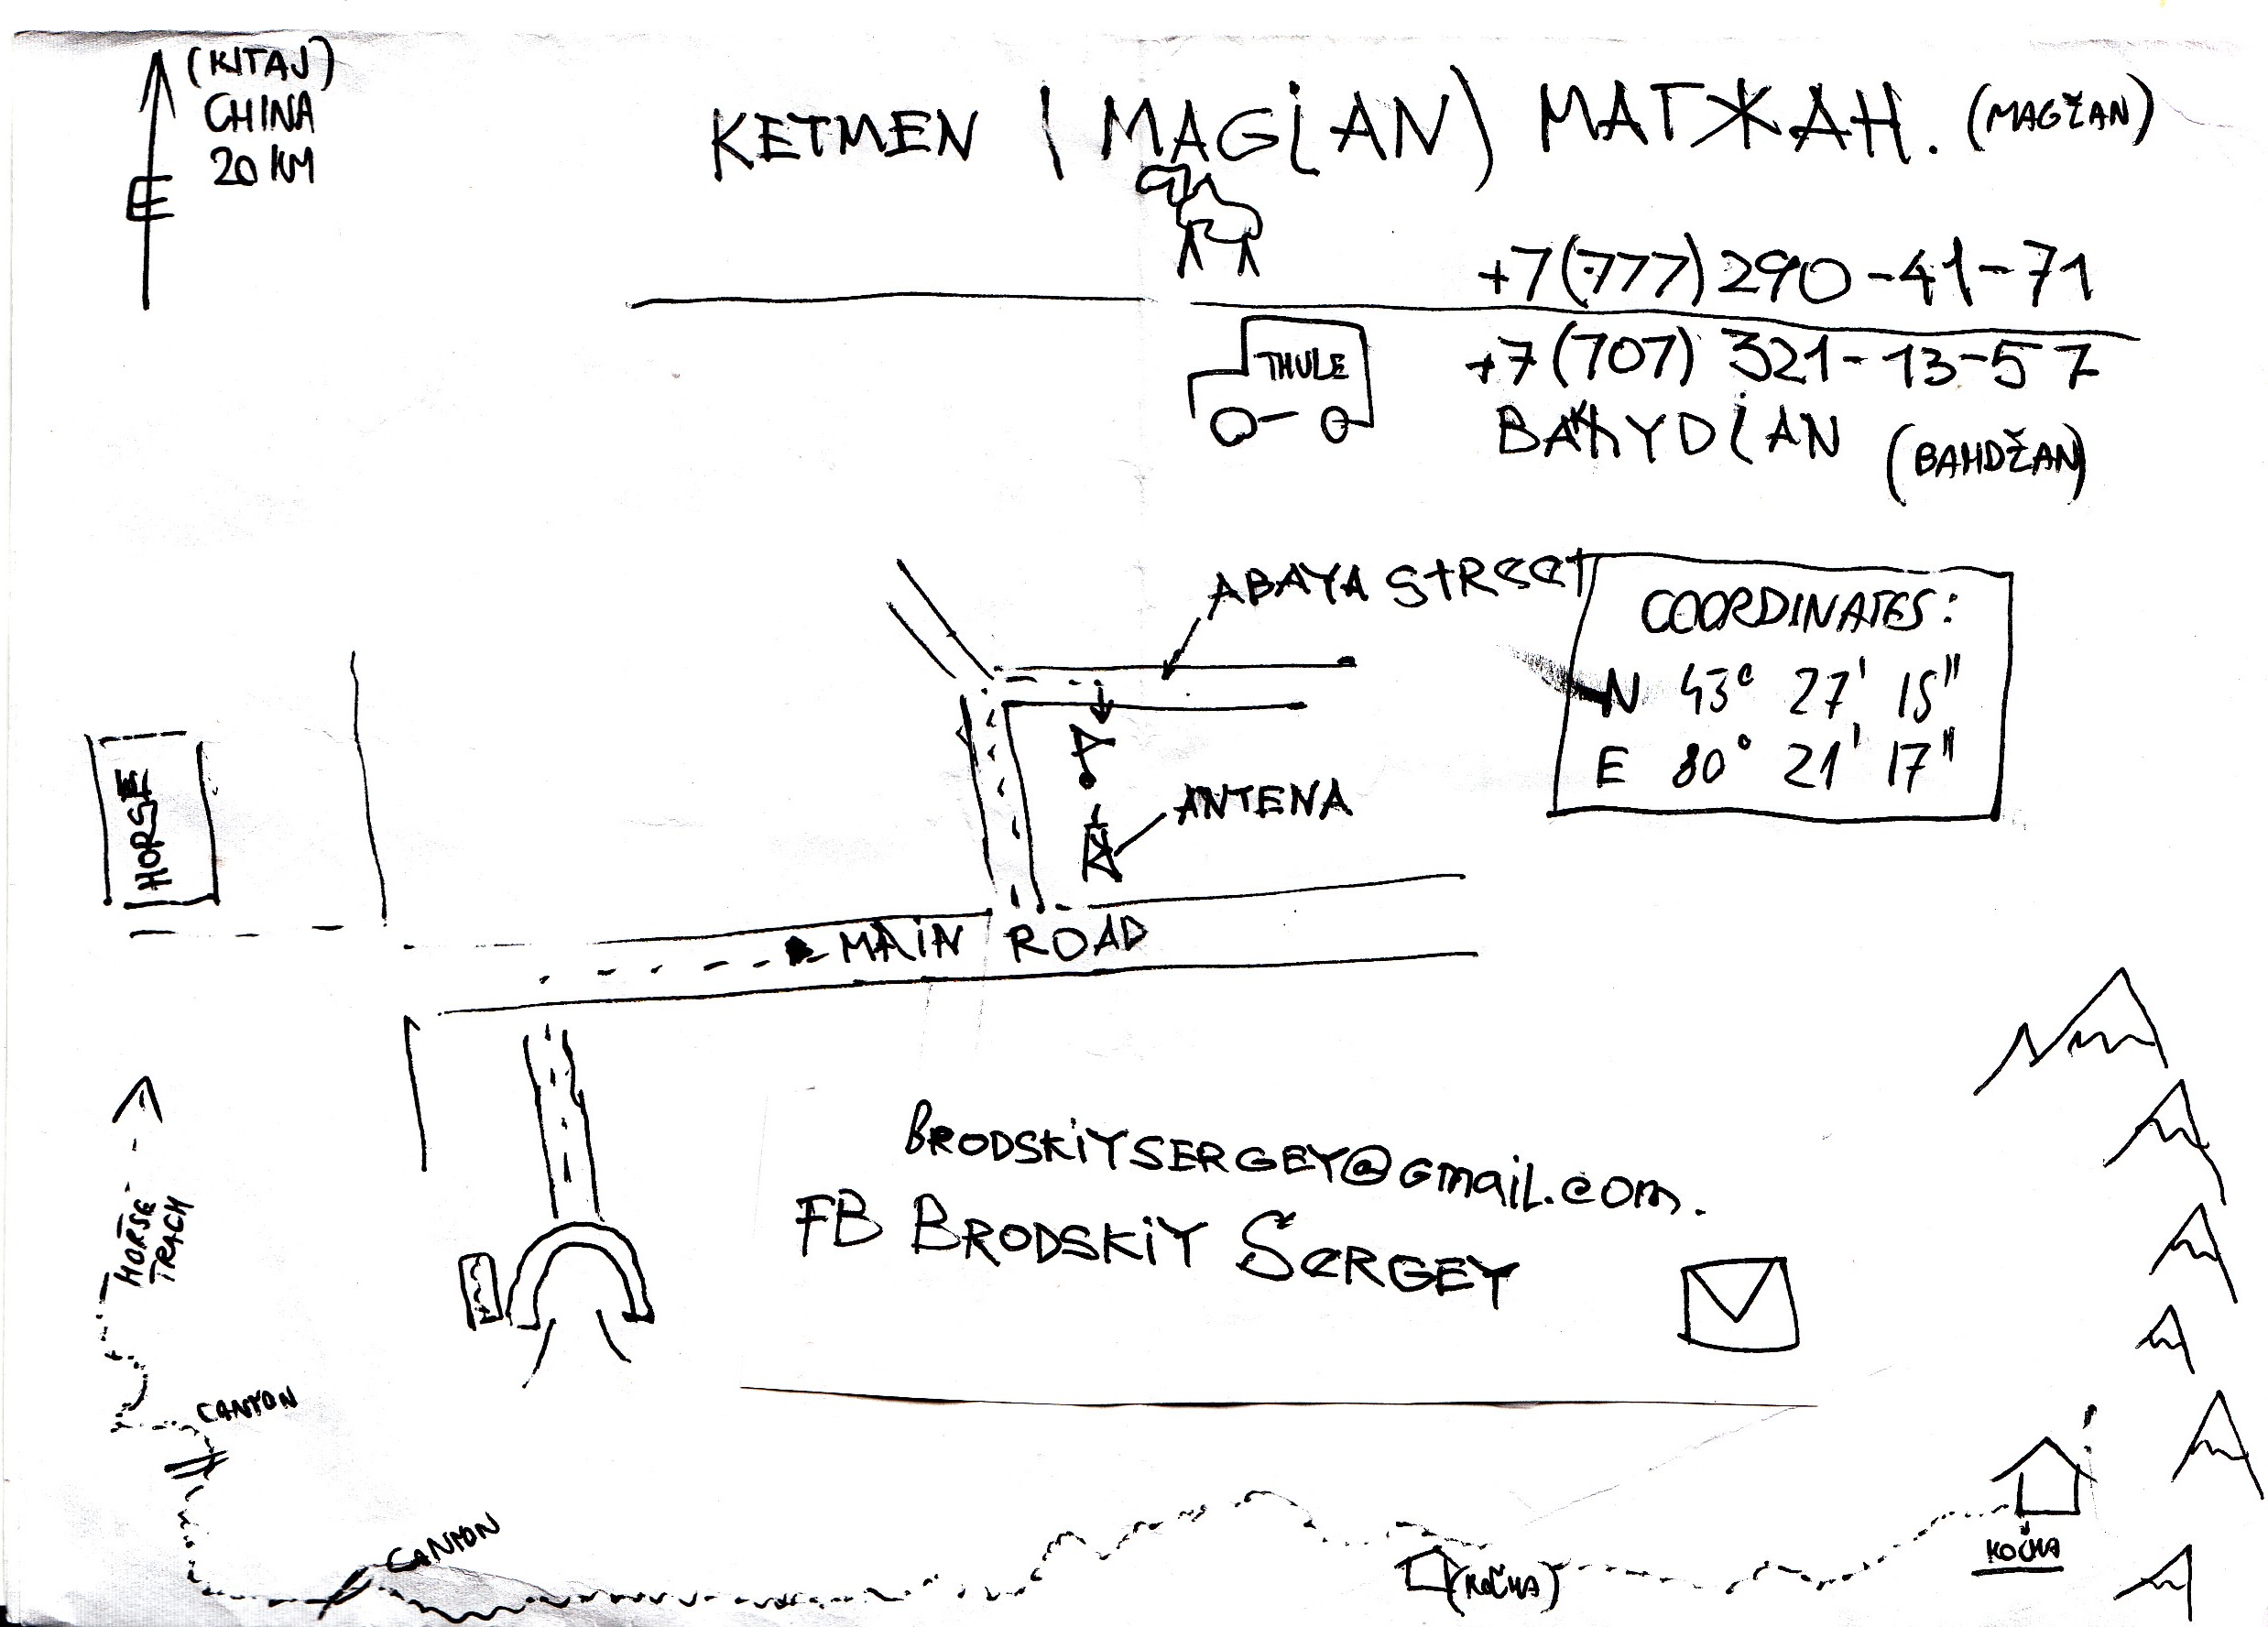 (KITAJ)
CHINA
20 KM
E
KETMEN (MAGİAN) МАТЖАН. (MAGŽAN)
+7(777) 290-41-71
THULE
+7(707) 321-13-57
(BAHDŽAN)
ABAYA STREET
COORDINATES:
N 43° 27' 15"
E 80° 21' 17"
HORSE
ANTENA
MAIN ROAD
BRODSKIYSERGEY@Gmail.com.
FB BRODSKIY SERGEY
HORSE
TRACH
CANYON
CANYON
(KOČHA)
KOČHA